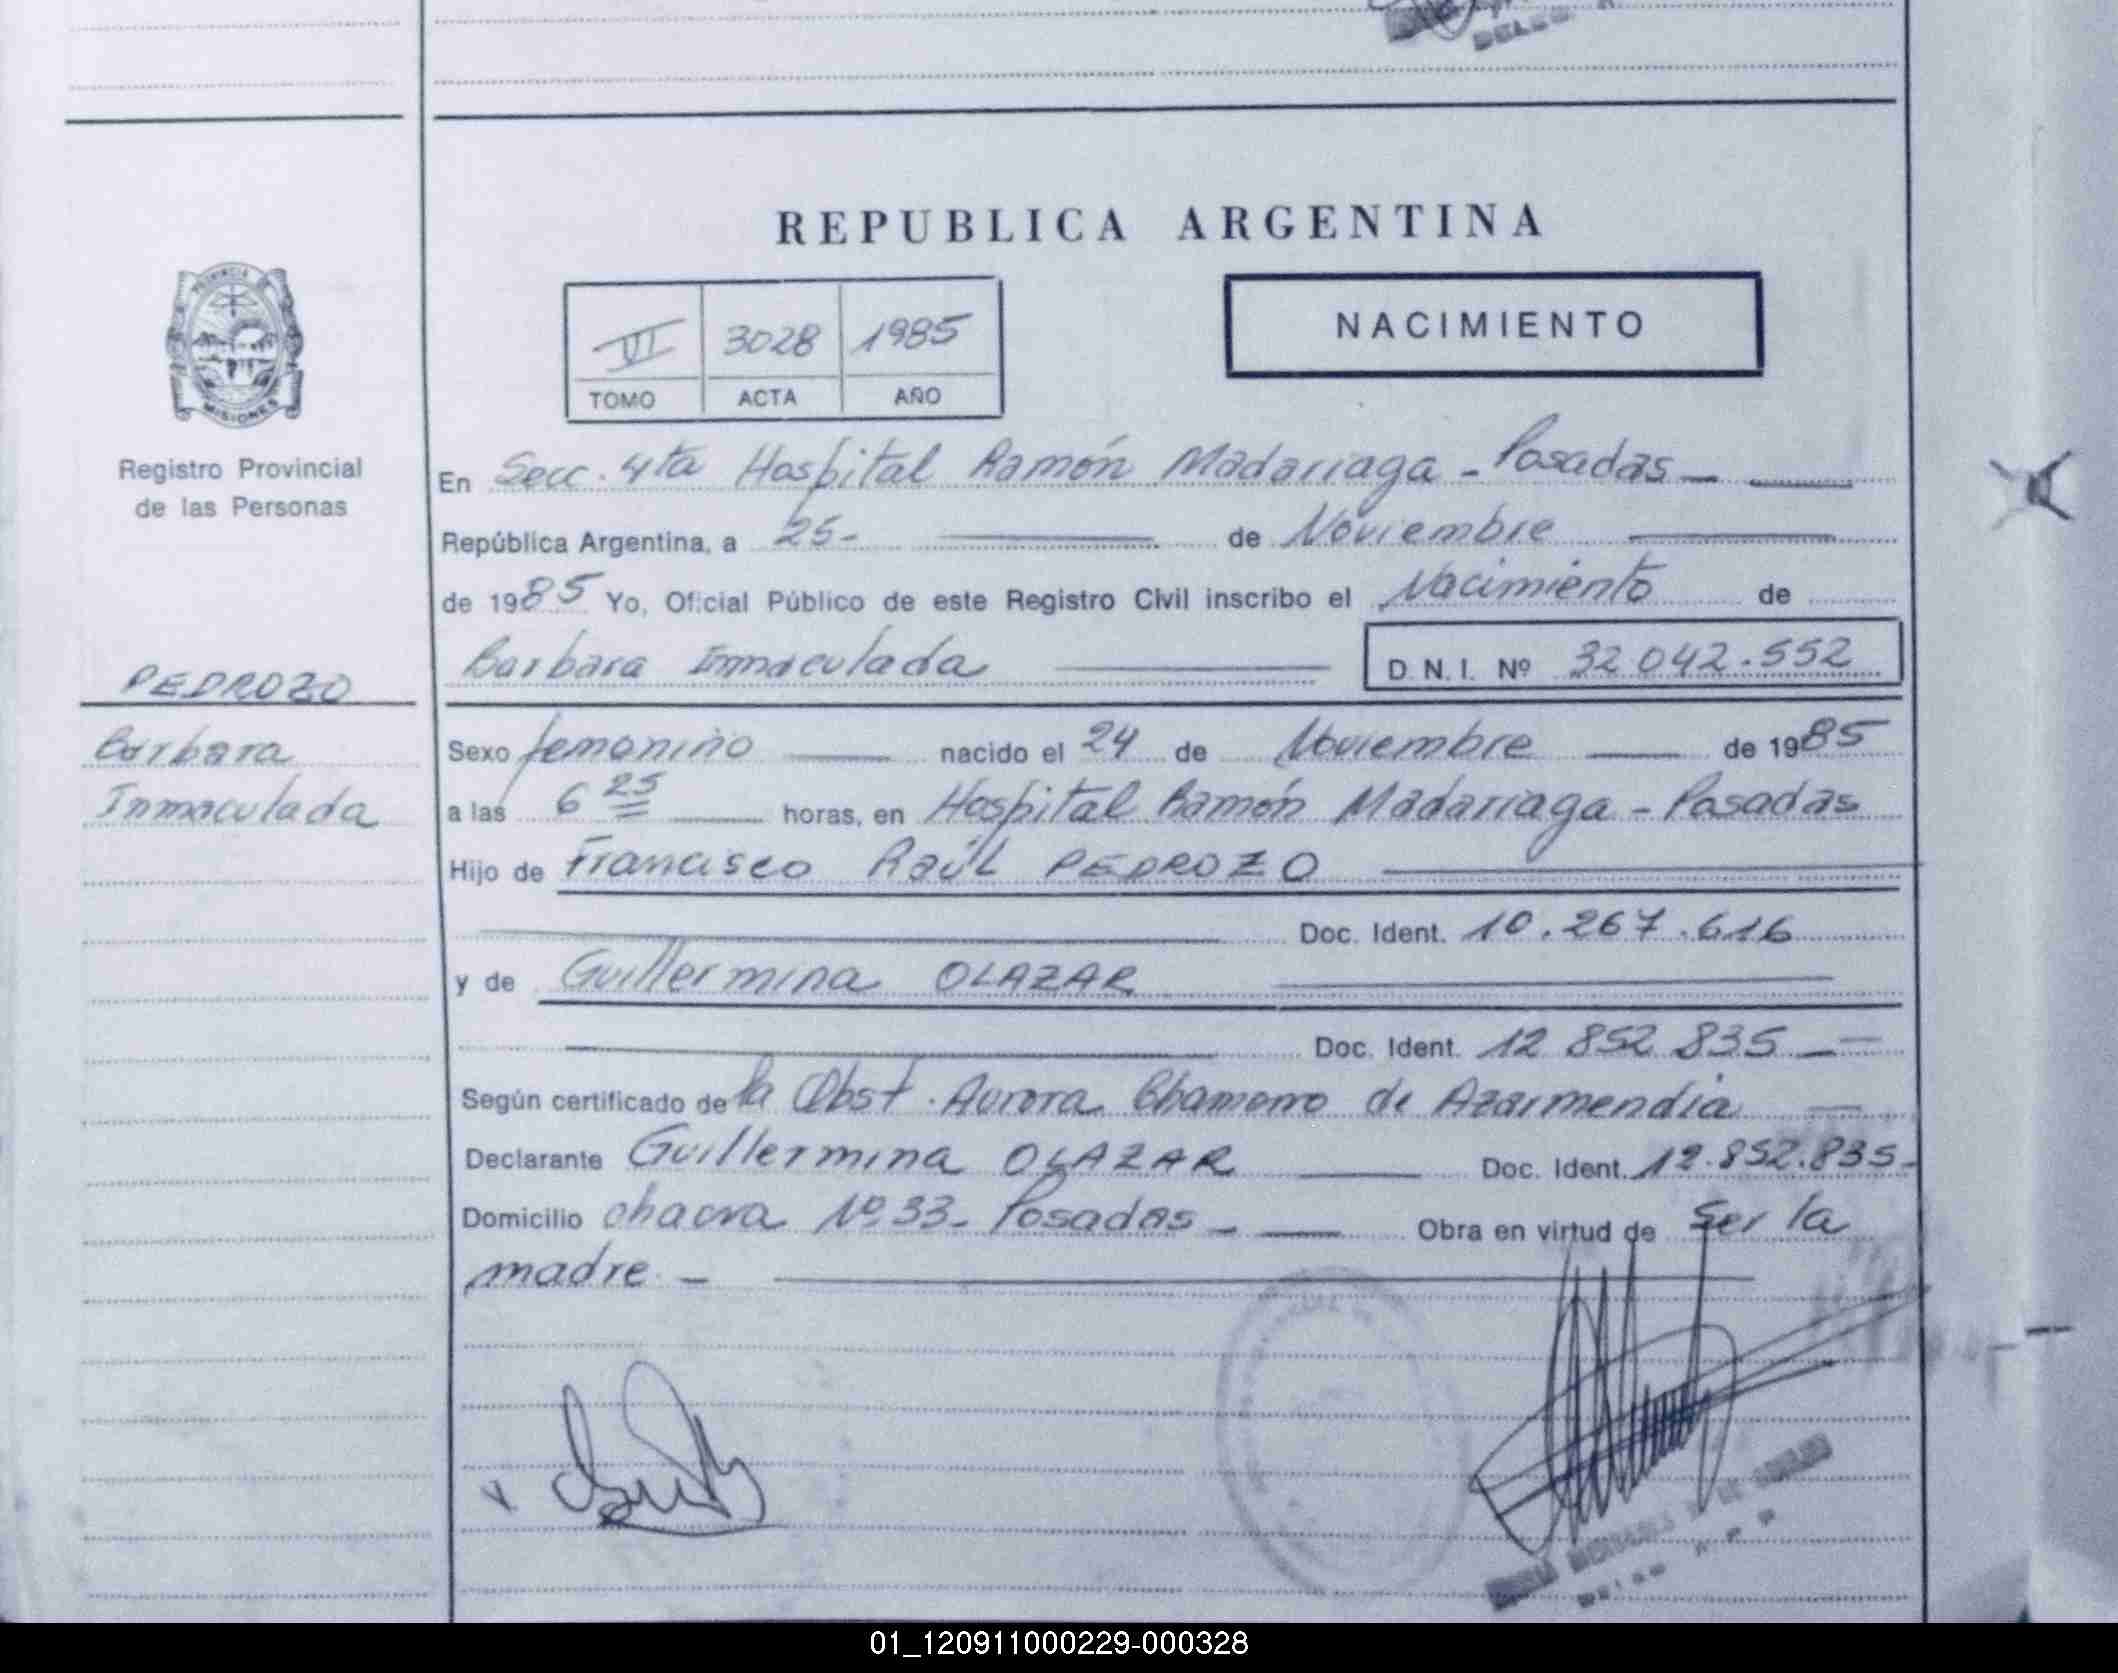 REPUBLICA ARGENTINA
PROVINCIA DE
MISIONES
Registro Provincial
de las Personas
VI 3028 1985
TOMO ACTA AÑO
NACIMIENTO
En Secc. 4ta Hospital Ramón Madariaga - Posadas -
República Argentina, a 25- de Noviembre
de 1985 Yo, Oficial Público de este Registro Civil inscribo el Nacimiento de
Barbara Inmaculada D.N.I. Nº 32 042.552
PEDROZO
Barbara
Inmaculada
Sexo femenino nacido el 24 de Noviembre de 1985
a las 6 25 horas, en Hospital Ramón Madariaga - Posadas
Hijo de Francisco Raúl PEDROZO
Doc. Ident. 10.267.616
y de Guillermina OLAZAR
Doc. Ident. 12 852 835
Según certificado de la Obst. Aurora Chamorro de Azarmendia
Declarante Guillermina OLAZAR Doc. Ident. 12.852.835-
Domicilio chacra Nº 33- Posadas - Obra en virtud de Ser la
madre. -
01_120911000229-000328